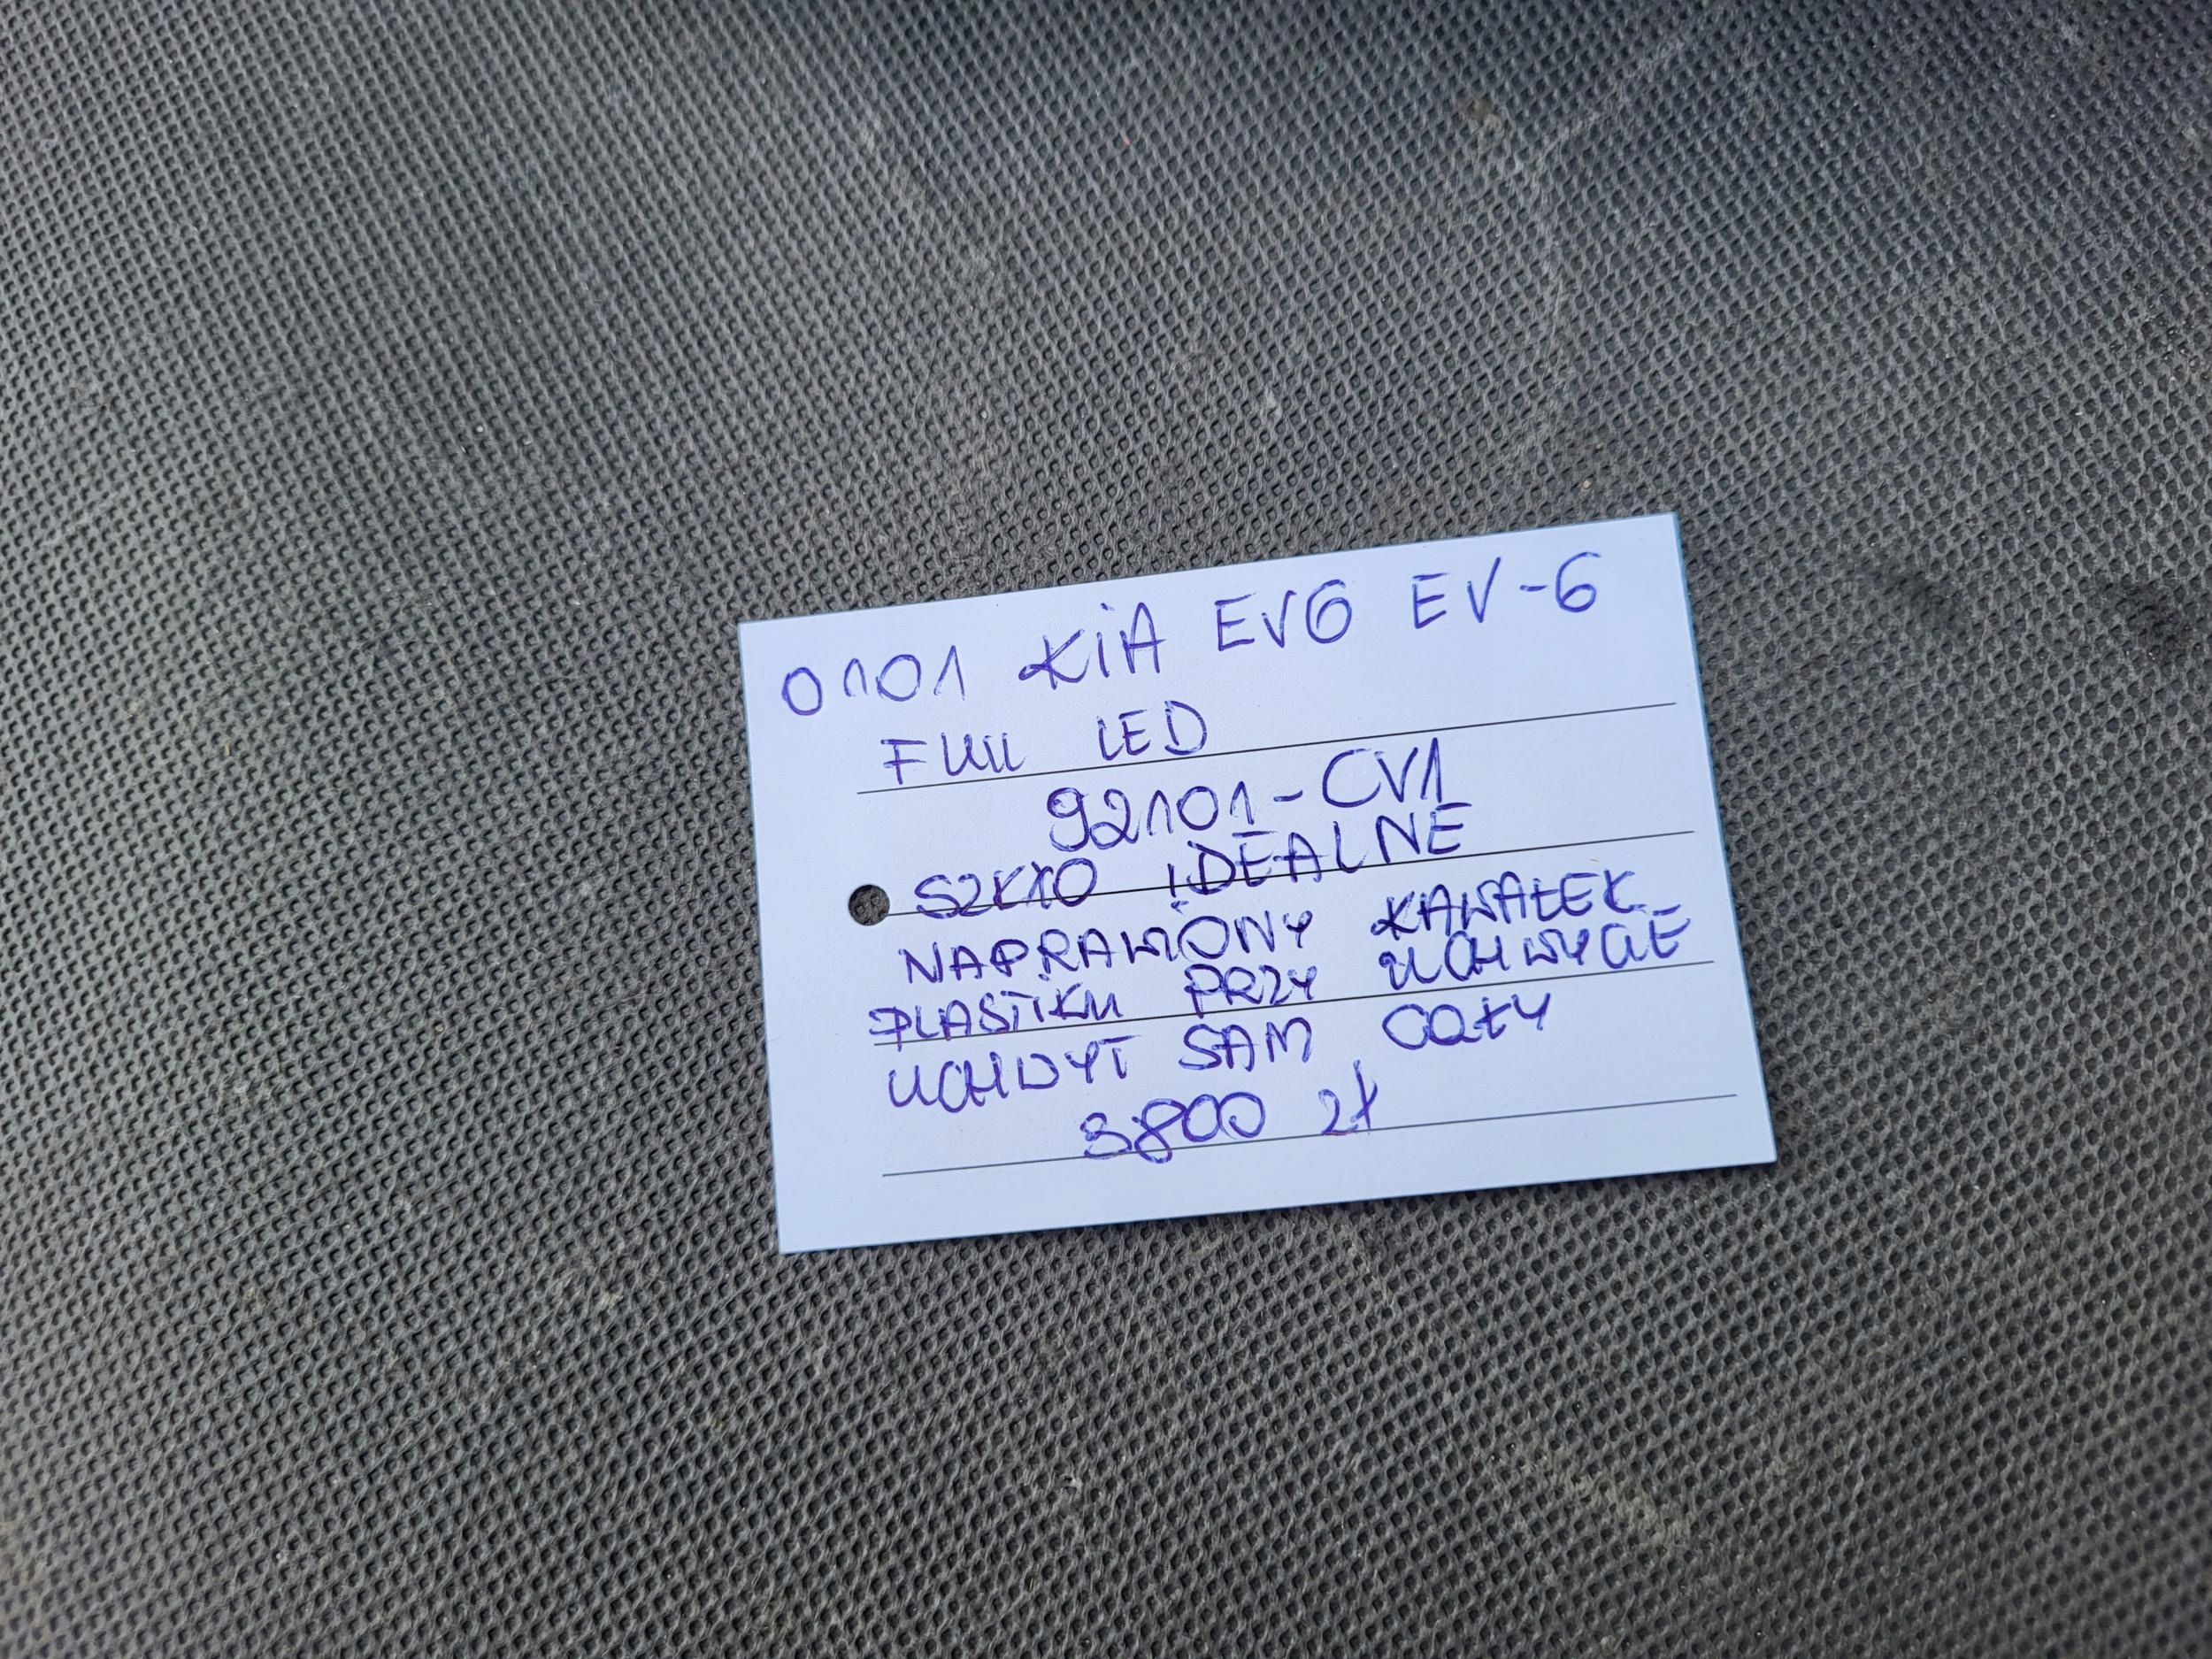 0101 KiA EV6 EV-6
FULL LED
92101-CV1
SZKŁO iDEALNE
NAPRAWIONY KAWAŁEK
PLASTiKU PRZY UCHWYCIE
UCHWYT SAM CAŁY
3800 zł